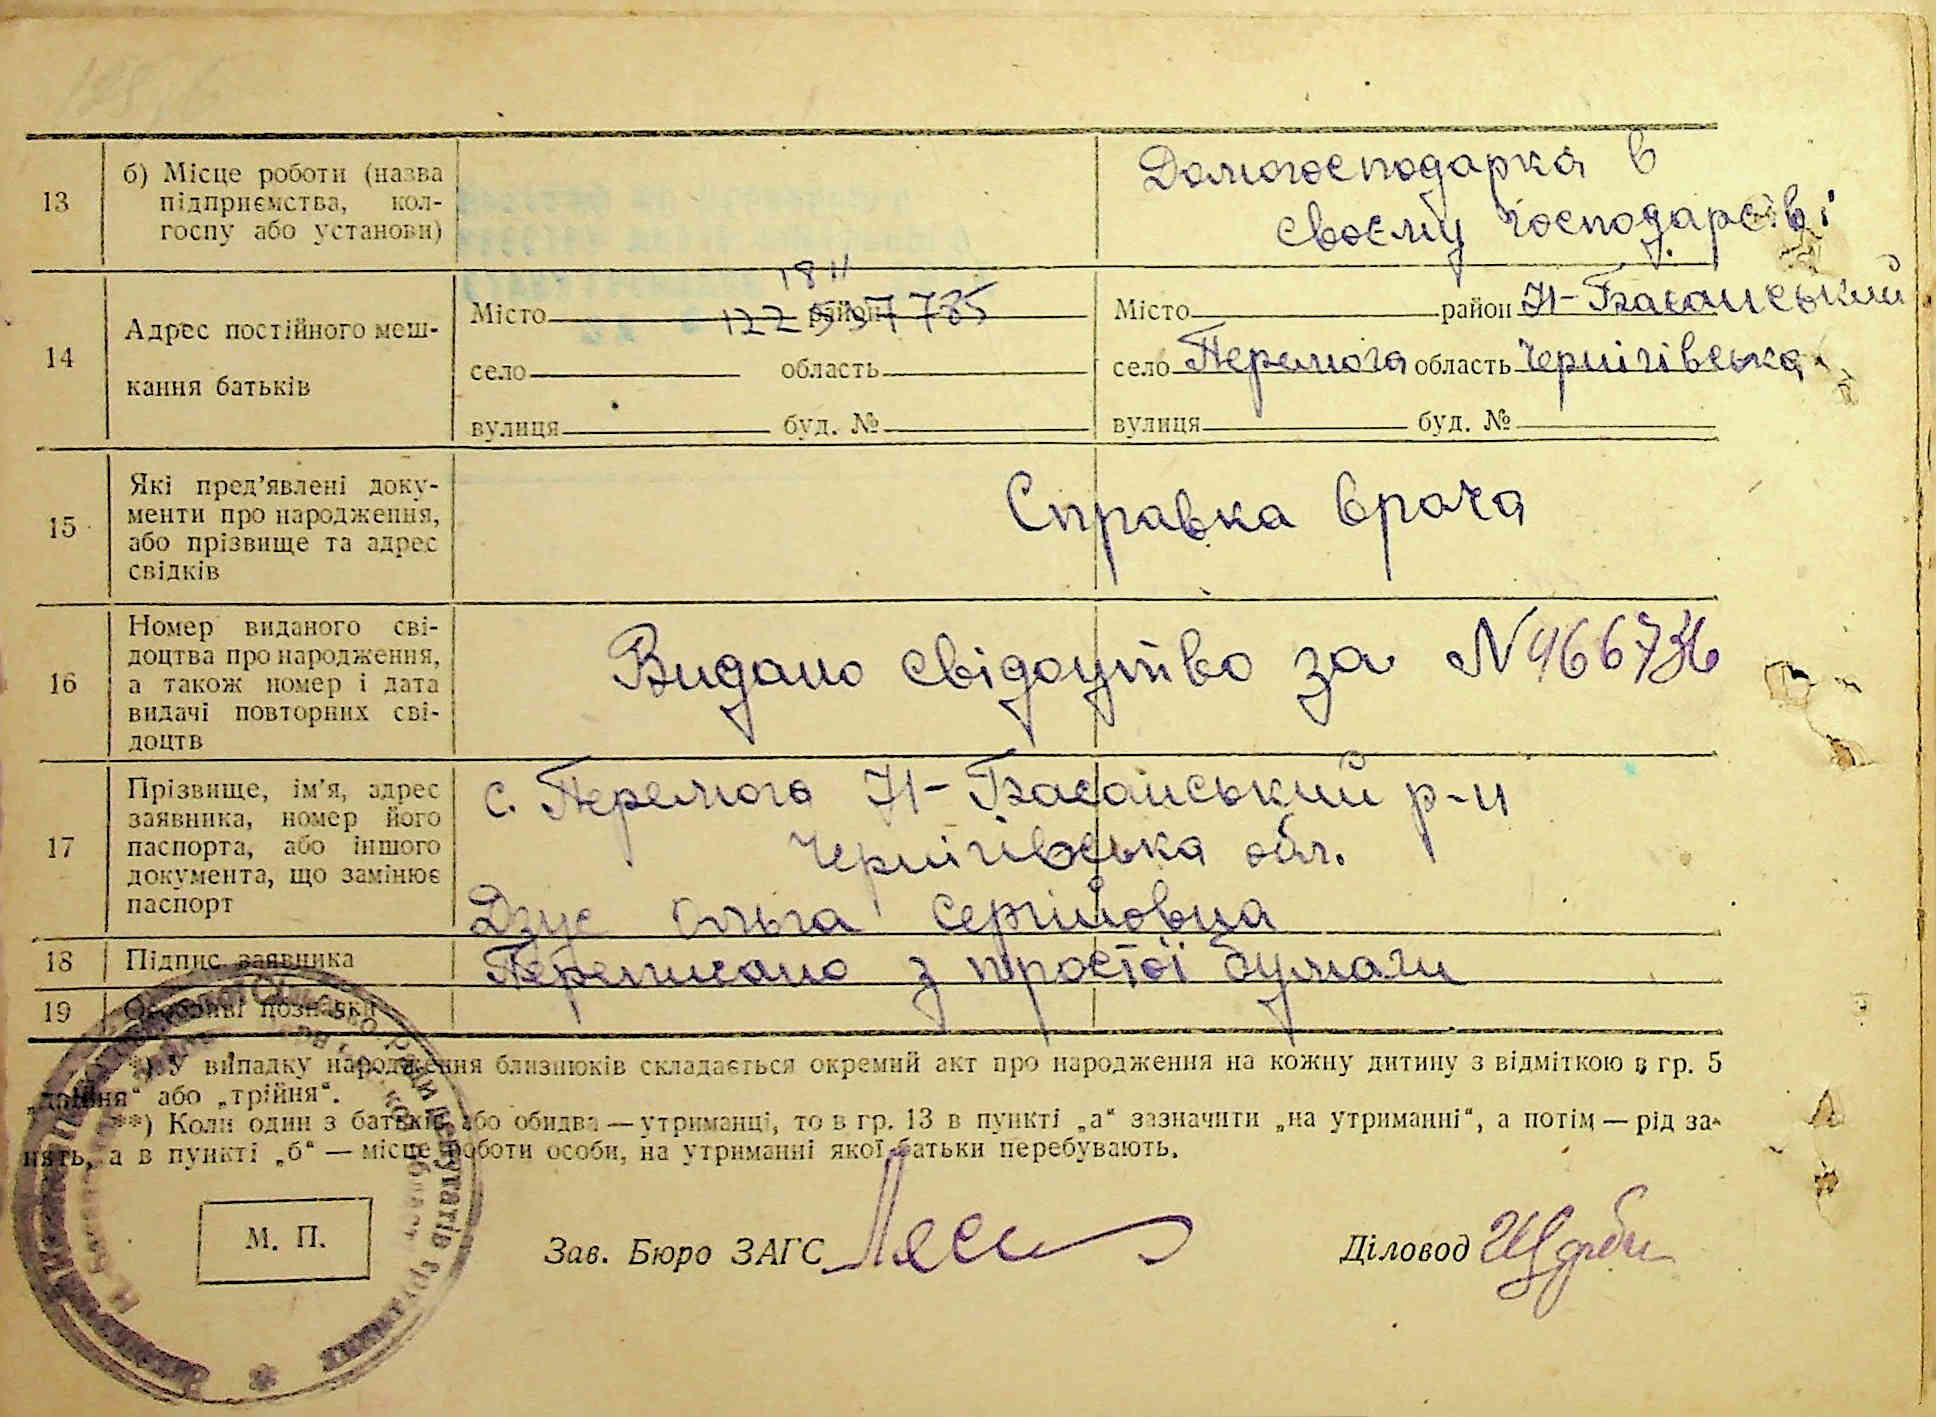 13
б) Місце роботи (назва
підприємства, кол-
госпу або установи)
Домогосподарка в
своєму господарстві
14
Адрес постійного меш-
кання батьків
18 11
Місто район
село область
вулиця буд. №
Місто район Н-Басанський
село Перемога область Чернігівська
вулиця буд. №
15
Які пред’явлені доку-
менти про народження,
або прізвище та адрес
свідків
Справка врача
16
Номер виданого сві-
доцтва про народження,
а також номер і дата
видачі повторних сві-
доцтв
Видано свідоцтво за №
17
Прізвище, ім’я, адрес
заявника, номер його
паспорта, або іншого
документа, що замінює
паспорт
с. Перемога Н-Басанський р-н
Чернігівська обл.
Дзус Ольга Сергіївна
18
Підпис заявника
Переписано з простої бумаги
19
Особливі познаки
*) У випадку народження близнюків складається окремий акт про народження на кожну дитину з відміткою в гр. 5
„двійня“ або „трійня“.
**) Коли один з батьків або обидва — утриманці, то в гр. 13 в пункті „а“ зазначити „на утриманні“, а потім — рід за-
нять, а в пункті „б“ — місце роботи особи, на утриманні якої батьки перебувають.
М. П.
Зав. Бюро ЗАГС
Діловод
депутатів трудящих